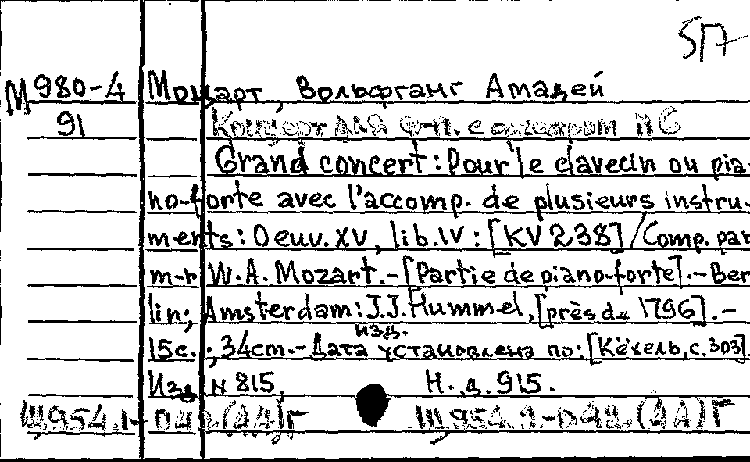 517
М 980-4 Моцарт, Вольфганг Амадей
91 Концерт для ф-п. с оркестром № 6
Grand concert: Pour le clavecin ou pia-
no-forte avec l'accomp. de plusieurs instru-
ments: Oeuv. XV, lib. IV: [KV 238] / Comp. par
m-r W. A. Mozart. - [Partie de piano-forte]. - Ber
lin; Amsterdam: J. J. Hummel, [près de 1796]. -
изд.
15 с.; 34 cm. - Дата установлена по: [Кёхель, с. 303]
Изд. N 815, Н. д. 915.